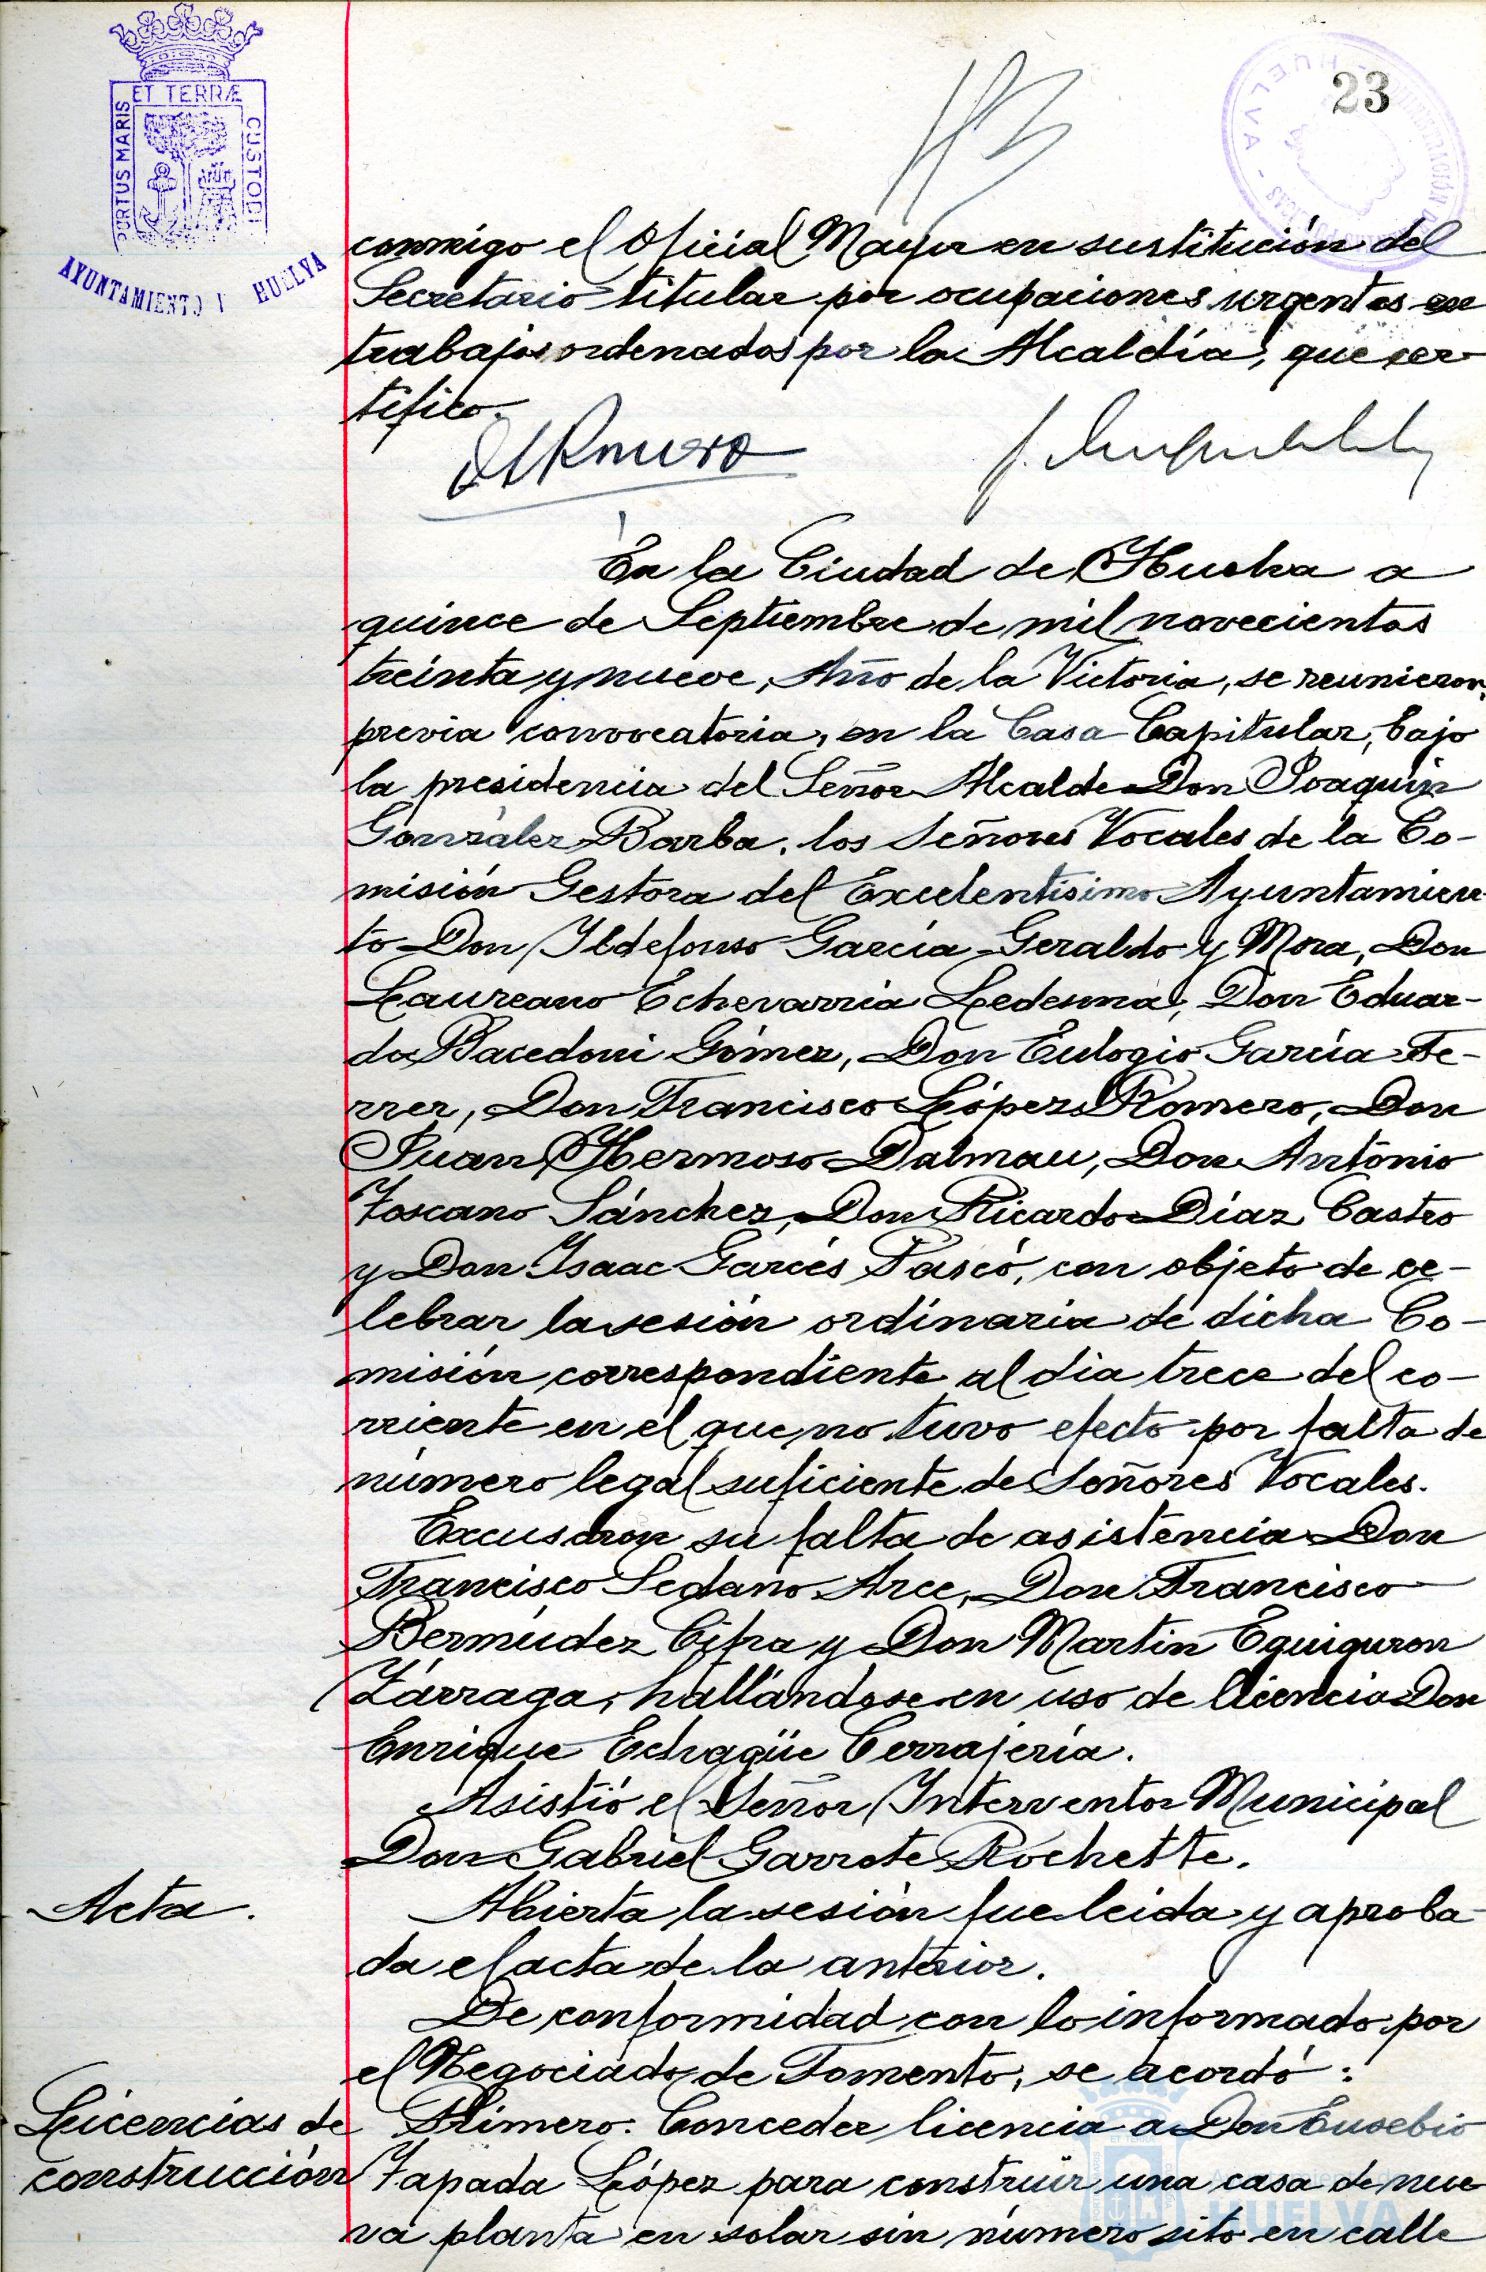 23
ET TERRÆ
PORTUS MARIS
CUSTODI
AYUNTAMIENTO HUELVA
HUELVA
conmigo el Oficial Mayor en sustitución del
Secretario titular por ocupaciones urgentes en
trabajos ordenados por la Alcaldía, que cer-
tifico.
En la Ciudad de Huelva a
quince de Septiembre de mil novecientos
treinta y nueve, Año de la Victoria, se reunieron,
previa convocatoria, en la Casa Capitular, bajo
la presidencia del Señor Alcalde Don Joaquín
González Barba, los Señores Vocales de la Co-
misión Gestora del Excelentísimo Ayuntamien-
to Don Ildefonso García Geraldo y Mora, Don
Laureano Echevarría Ledesma, Don Eduar-
do Bacedoni Gómez, Don Eulogio García Fe-
rrer, Don Francisco López Romero, Don
Juan Hermoso Dalmau, Don Antonio
Toscano Sánchez, Don Ricardo Díaz Castro
y Don Isaac Garcés Pascó, con objeto de ce-
lebrar la sesión ordinaria de dicha Co-
misión correspondiente al día trece del co-
rriente en el que no tuvo efecto por falta de
número legal suficiente de Señores Vocales.
Excusaron su falta de asistencia Don
Francisco Sedano Arce, Don Francisco
Bermúdez Cifra y Don Martín Eguiguron
Zárraga, hallándose en uso de licencia Don
Enrique Echagüe Cerrajería.
Asistió el Señor Interventor Municipal
Don Gabriel Garrote Rochette.
Acta.
Abierta la sesión fue leida y aproba-
da el acta de la anterior.
De conformidad con lo informado por
el Negociado de Fomento, se acordó:
Licencias de
construcción
Primero. Conceder licencia a Don Eusebio
Tapada López para construir una casa de nue-
va planta en solar sin número sito en calle
HUELVA